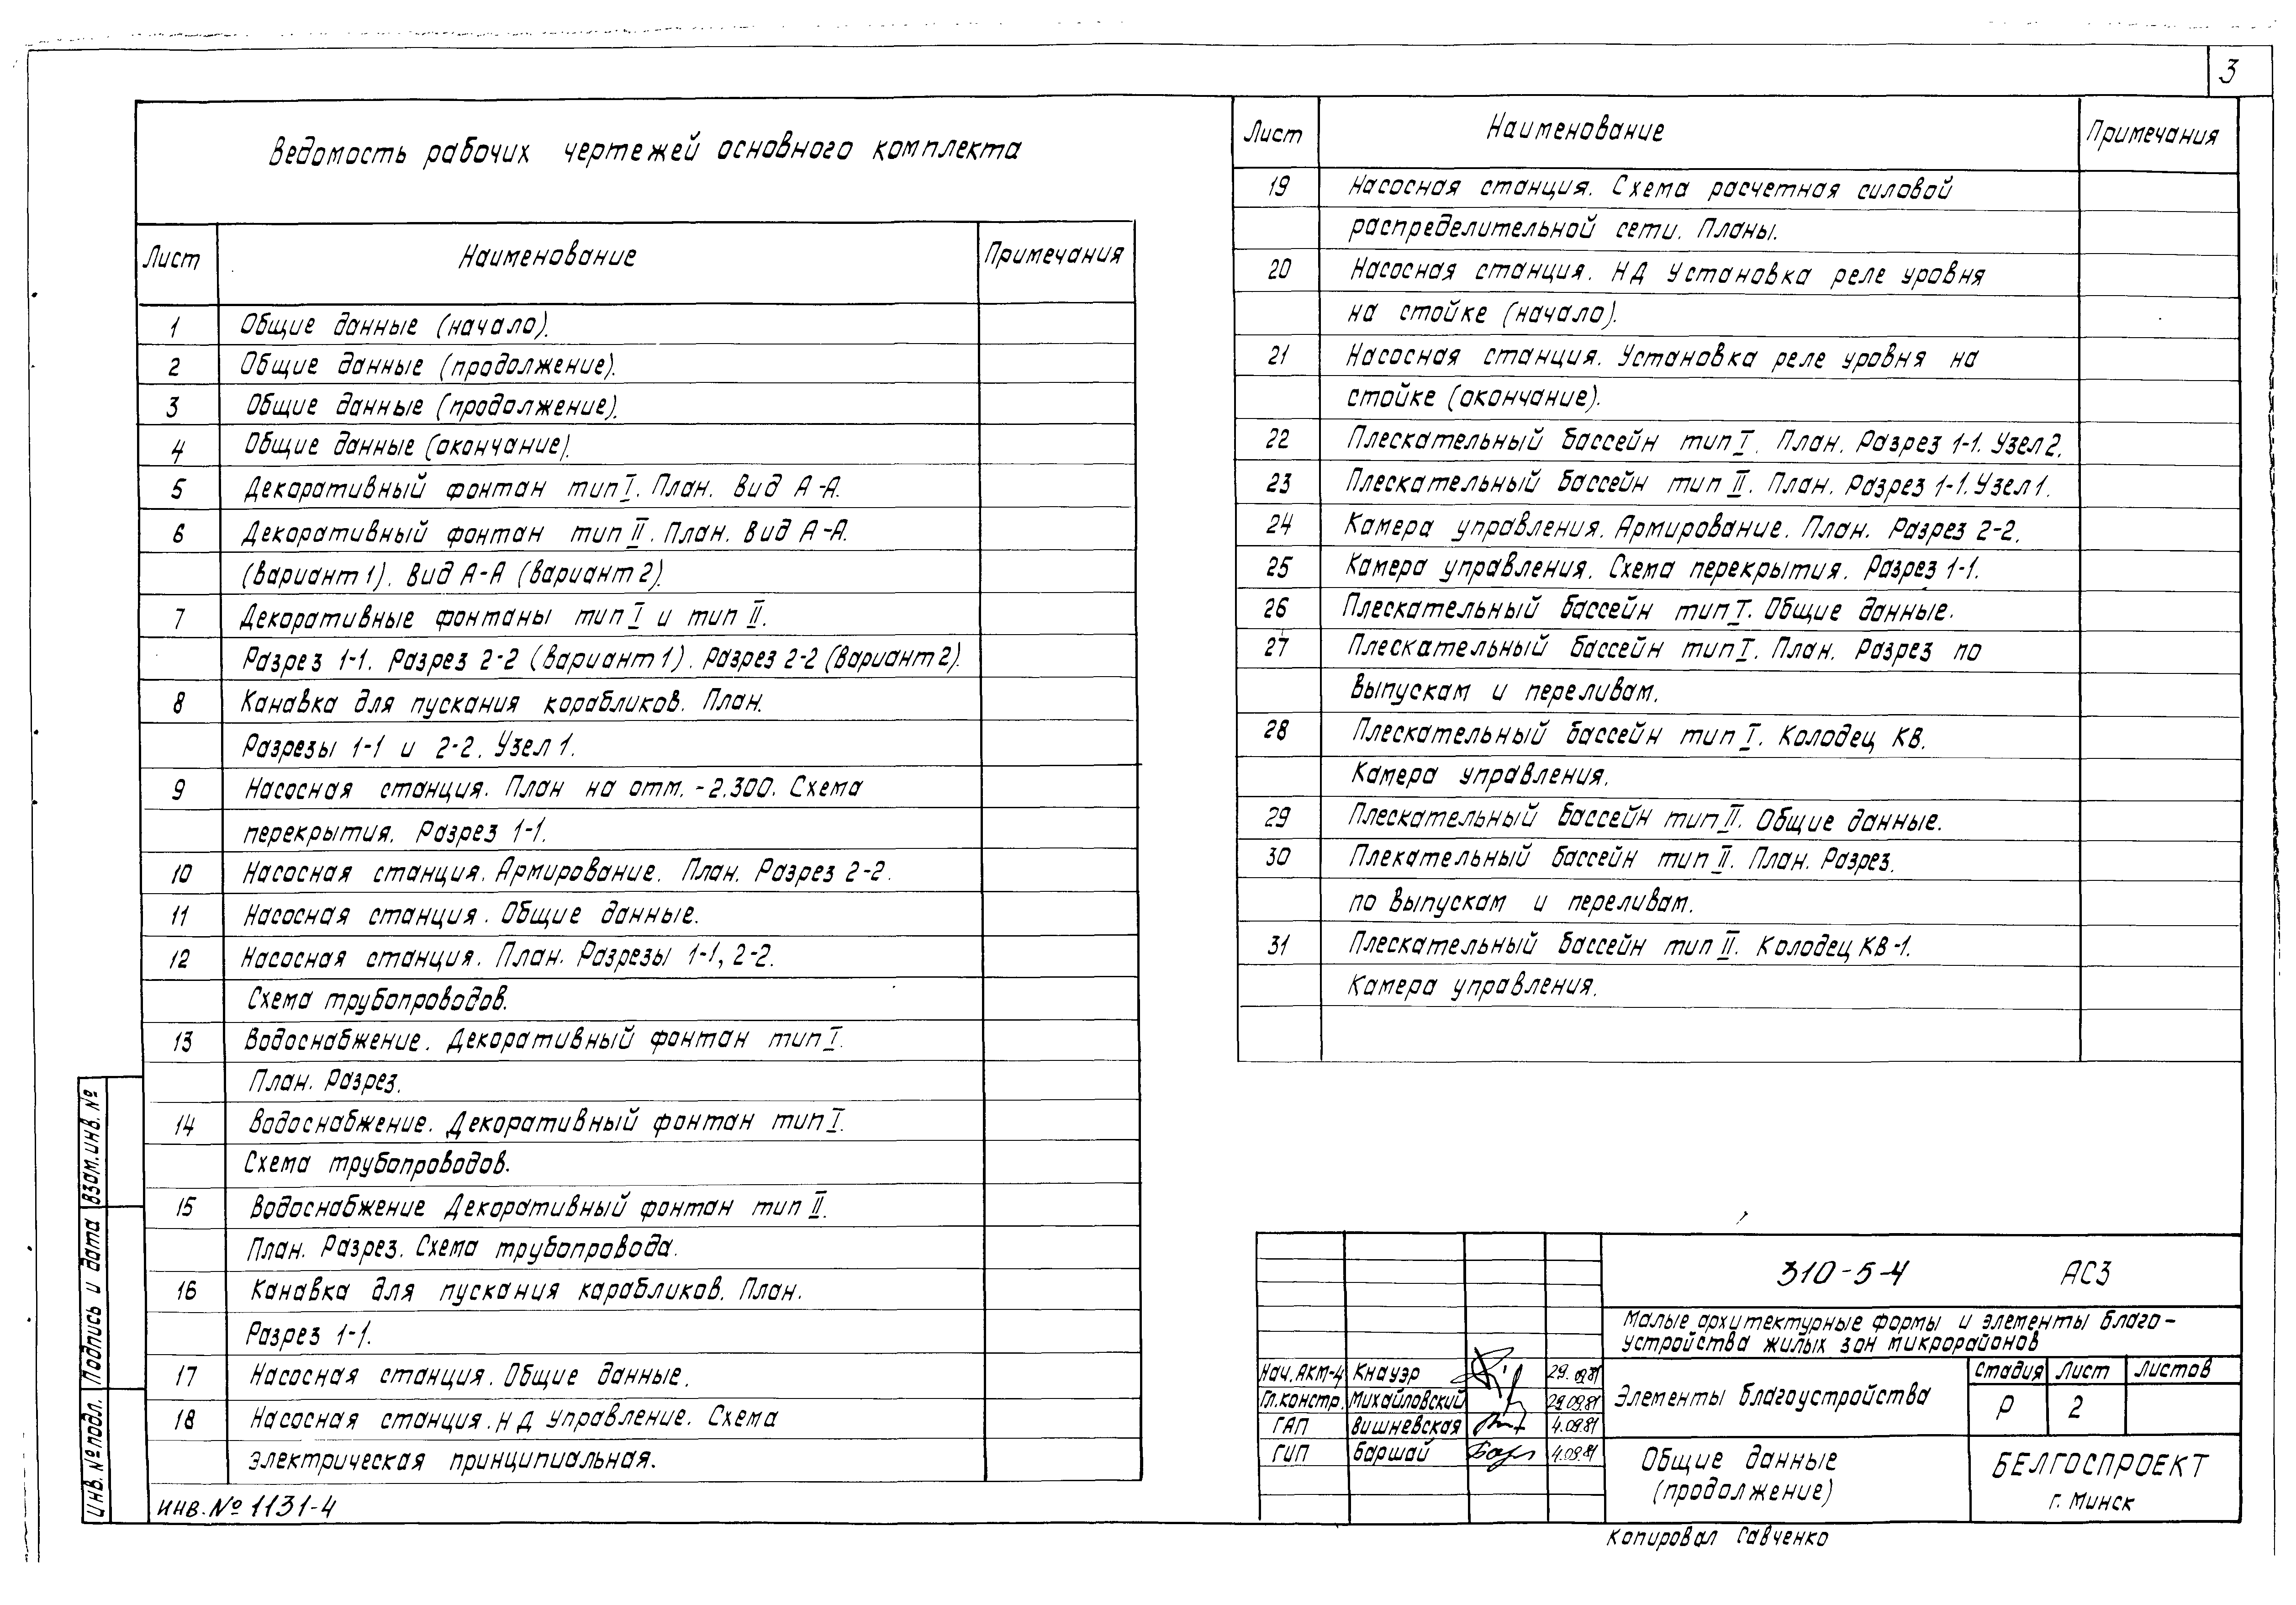 3
Ведомость рабочих чертежей основного комплекта
Лист Наименование Примечания
1 Общие данные (начало).
2 Общие данные (продолжение).
3 Общие данные (продолжение).
4 Общие данные (окончание).
5 Декоративный фонтан тип I. План. Вид А-А.
6 Декоративный фонтан тип II. План. Вид А-А.
(вариант 1). Вид А-А (вариант 2).
7 Декоративные фонтаны тип I и тип II.
Разрез 1-1. Разрез 2-2 (вариант 1). Разрез 2-2 (вариант 2).
8 Канавка для пускания корабликов. План.
Разрезы 1-1 и 2-2. Узел 1.
9 Насосная станция. План на отм. -2.300. Схема
перекрытия. Разрез 1-1.
10 Насосная станция. Армирование. План. Разрез 2-2.
11 Насосная станция. Общие данные.
12 Насосная станция. План. Разрезы 1-1, 2-2.
Схема трубопроводов.
13 Водоснабжение. Декоративный фонтан тип I.
План. Разрез.
14 Водоснабжение. Декоративный фонтан тип I.
Схема трубопроводов.
15 Водоснабжение Декоративный фонтан тип II.
План. Разрез. Схема трубопровода.
16 Канавка для пускания карабликов. План.
Разрез 1-1.
17 Насосная станция. Общие данные.
18 Насосная станция. НД Управление. Схема
электрическая принципиальная.
Лист Наименование Примечания
19 Насосная станция. Схема расчетная силовой
распределительной сети. Планы.
20 Насосная станция. НД Установка реле уровня
на стойке (начало).
21 Насосная станция. Установка реле уровня на
стойке (окончание).
22 Плескательный бассейн тип I. План. Разрез 1-1. Узел 2.
23 Плескательный бассейн тип II. План. Разрез 1-1. Узел 1.
24 Камера управления. Армирование. План. Разрез 2-2.
25 Камера управления. Схема перекрытия. Разрез 1-1.
26 Плескательный бассейн тип I. Общие данные.
27 Плескательный бассейн тип I. План. Разрез по
выпускам и переливам.
28 Плескательный бассейн тип I. Колодец КВ.
Камера управления.
29 Плескательный бассейн тип II. Общие данные.
30 Плекательный бассейн тип II. План. Разрез.
по выпускам и переливам.
31 Плескательный бассейн тип II. Колодец КВ-1.
Камера управления.
310-5-4 АС3
Малые архитектурные формы и элементы благо-
устройства жилых зон микрорайонов
Нач. АКМ-4 Кнауэр 29.09.81
Гл. констр. Михайловский 29.09.81
ГАП Вишневская 4.09.81
ГИП Баршай 4.09.81
Элементы благоустройства
Стадия Лист Листов
Р 2
Общие данные
(продолжение)
БЕЛГОСПРОЕКТ
г. Минск
Копировал Савченко
Взам. инв. №
Подпись и дата
Инв. № подл.
инв. № 1131-4